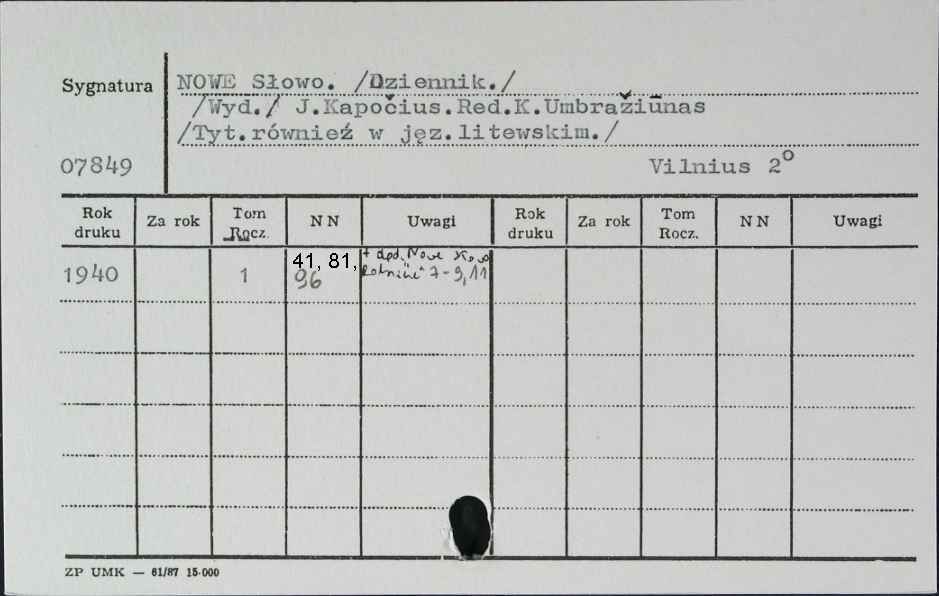 Sygnatura
NOWE Słowo. /Dziennik./
/Wyd./ J.Kapočius.Red.K.Umbražiūnas
/Tyt.również w jęz.litewskim./
07849
Vilnius 2°
Rok druku Za rok Tom Rocz. N N Uwagi Rok druku Za rok Tom Rocz. N N Uwagi
1940 1 41, 81, + dod. "Nowe Słowo
96 Rolnicze" 7-9, 11
ZP UMK — 61/87 15·000